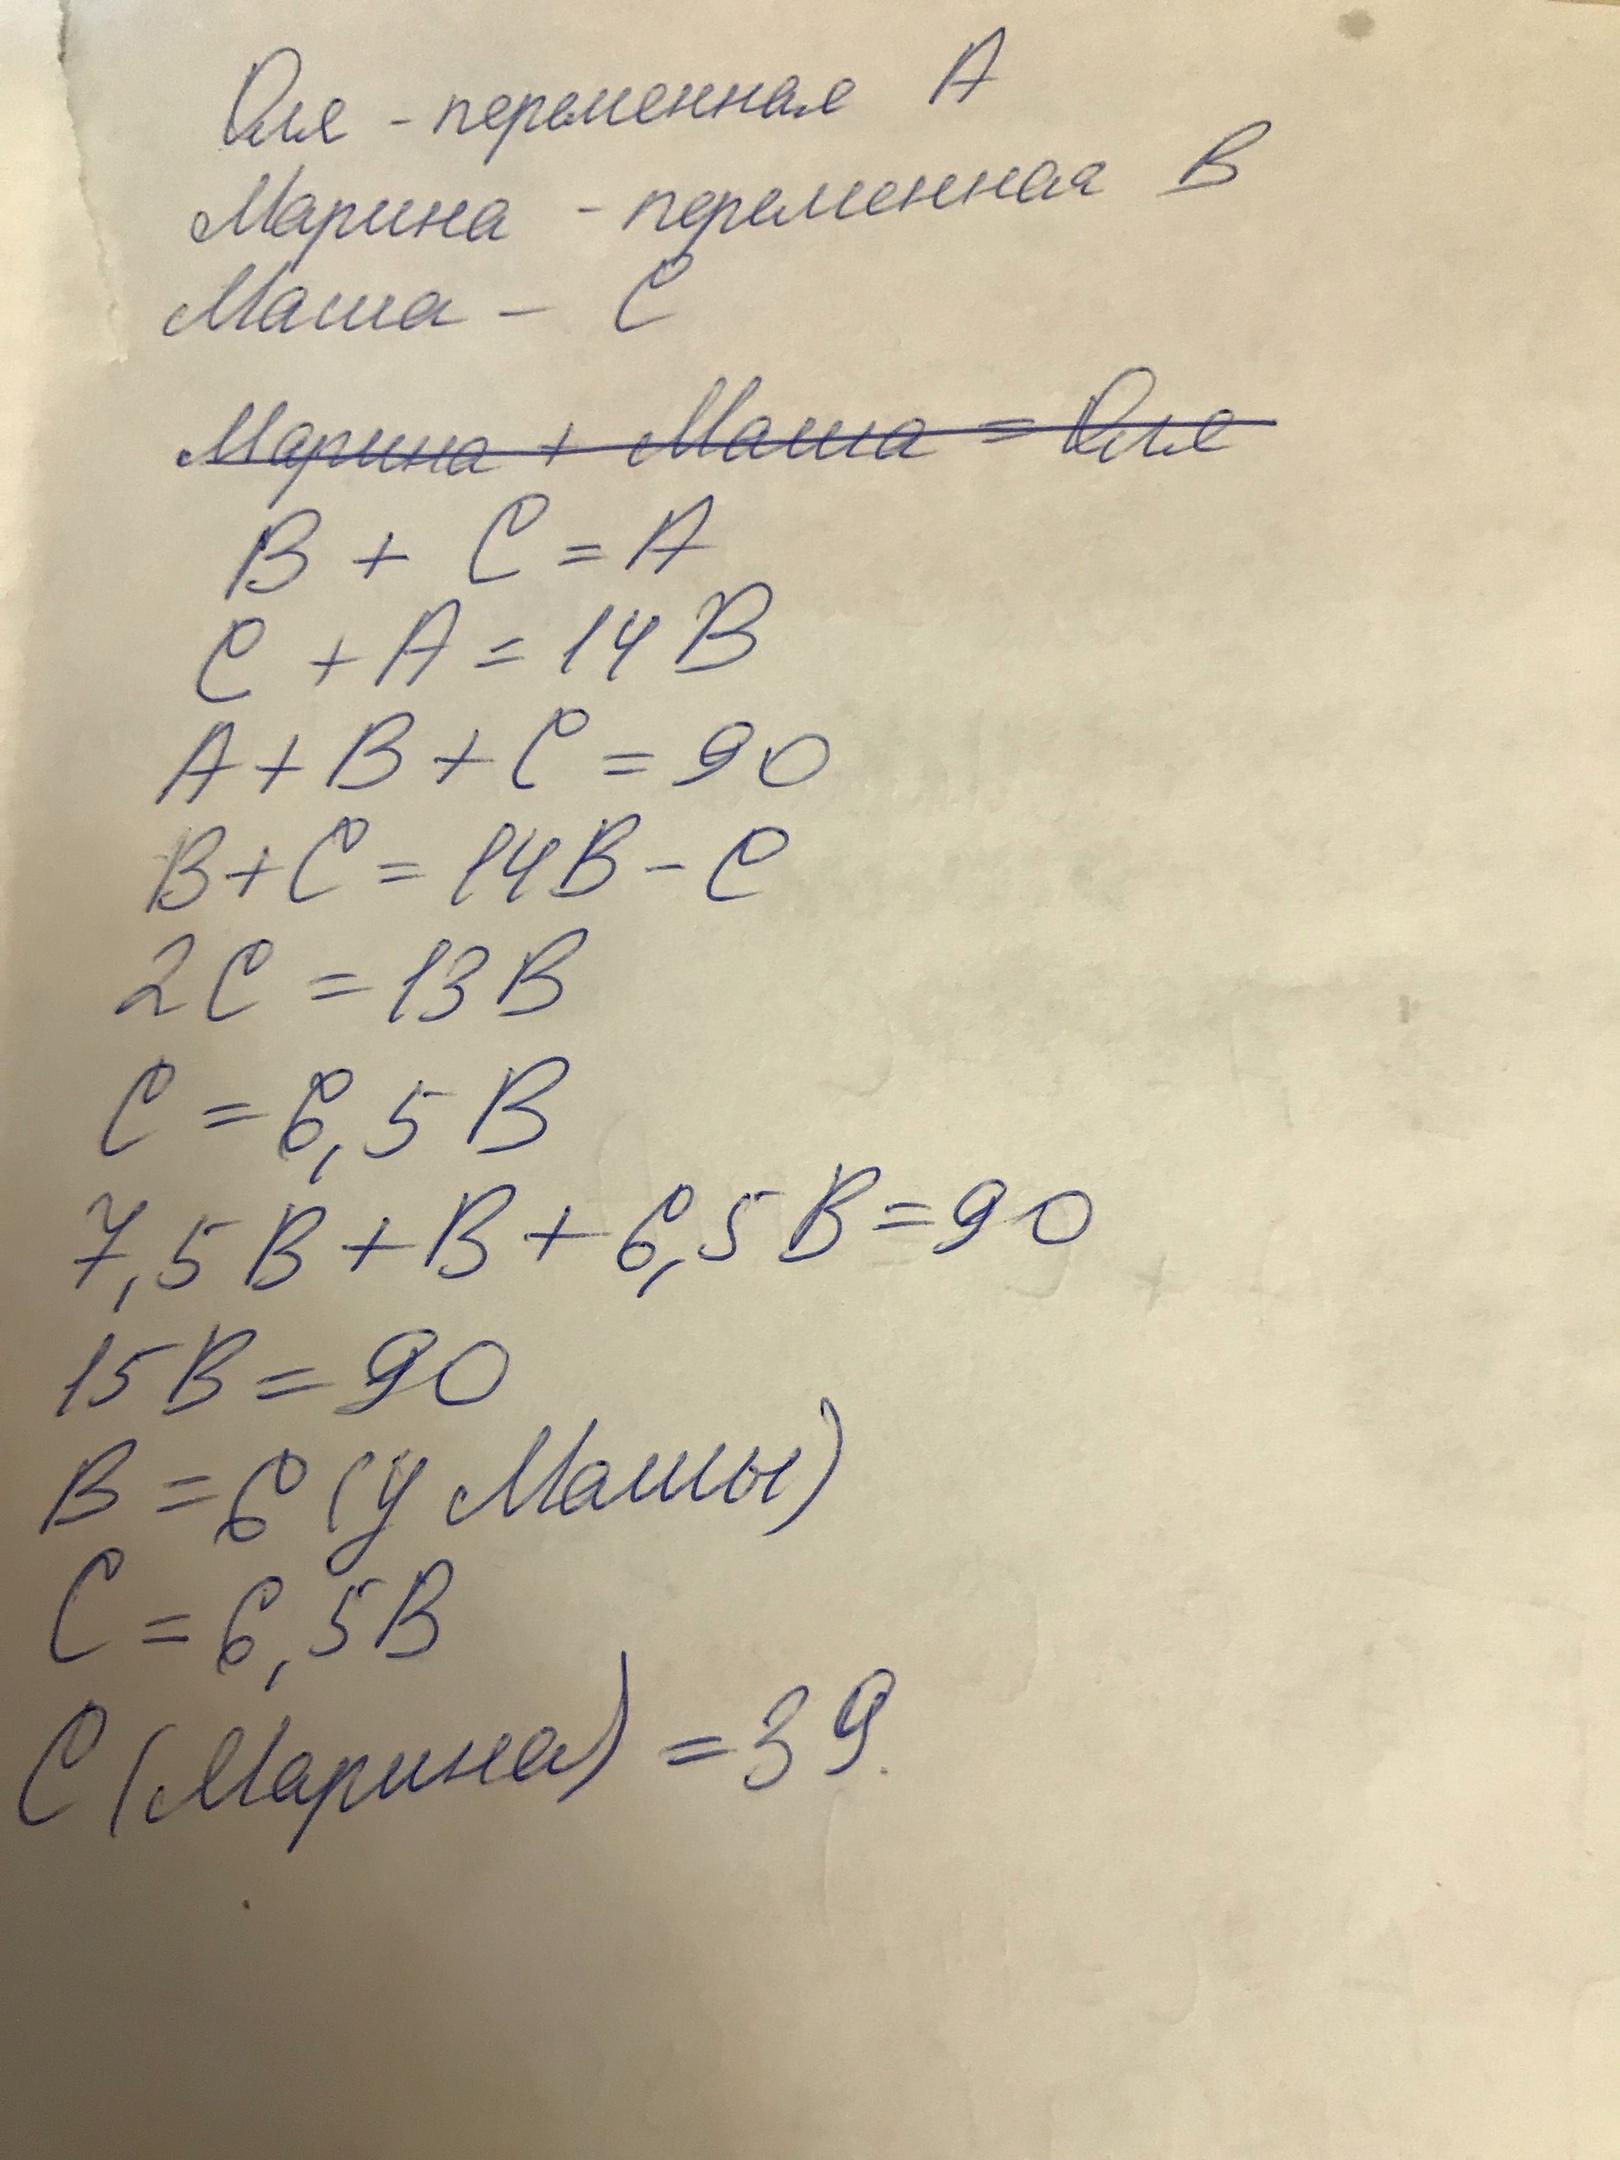 Оля - переменная A
Марина - переменная B
Маша - C
Марина + Маша = Оля
B + C = A
C + A = 14B
A + B + C = 90
B + C = 14B - C
2C = 13B
C = 6,5B
7,5B + B + 6,5B = 90
15B = 90
B = 6 (у Машы)
C = 6,5B
C (Марина) = 39.